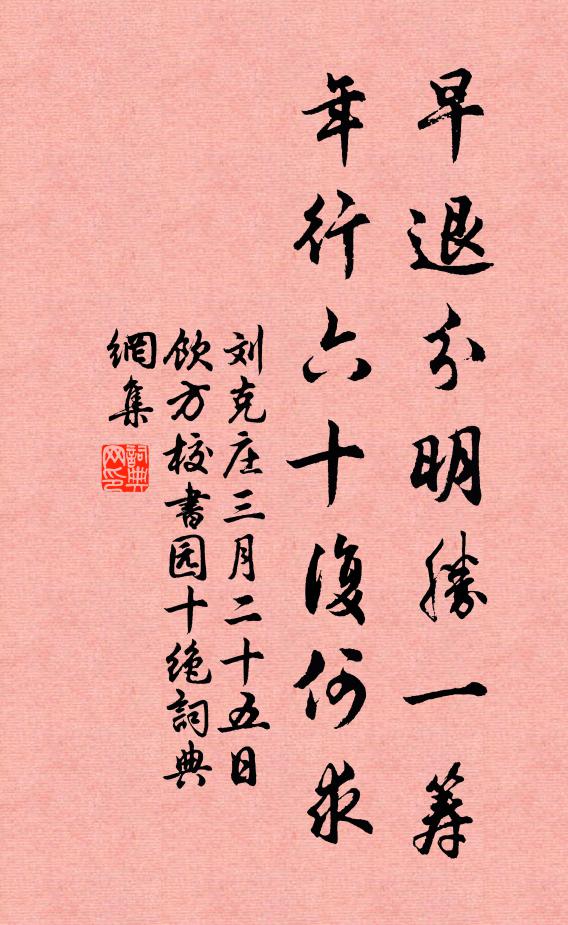 早退分明勝一筹
年行六十復何求
刘克庄三月二十五日
饮方校書园十绝詞典
網集
詞典
网印